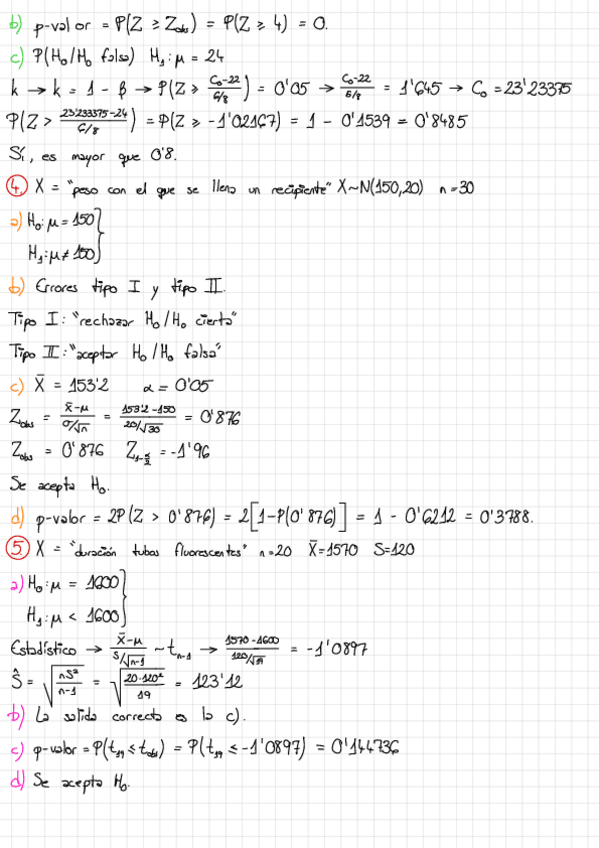 b) p-valor = P(Z ≥ Zobs) = P(Z ≥ 4) = 0.
c) P(H₀/H₀ falsa) H₁: μ = 24
k → k = 1 - β → P(Z ≥ C₀-22 / 6/8) = 0'05 → C₀-22 / 6/8 = 1'645 → C₀ = 23'23375
P(Z > 23'233375-24 / 6/8) = P(Z ≥ -1'02167) = 1 - 0'1539 = 0'8485
Sí, es mayor que 0'8.
4. X = "peso con el que se llena un recipiente" X~N(150,20) n=30
a) H₀: μ = 150
H₁: μ ≠ 150
b) Errores tipo I y tipo II.
Tipo I: "rechazar H₀/H₀ cierta"
Tipo II: "aceptar H₀/H₀ falsa"
c) X̄ = 153'2 α = 0'05
Zobs = x̄-μ / σ/√n = 153'2-150 / 20/√30 = 0'876
Zobs = 0'876 Z1-α/2 = -1'96
Se acepta H₀.
d) p-valor = 2P(Z > 0'876) = 2[1-P(0'876)] = 1 - 0'6212 = 0'3788.
5. X = "duración tubos fluorescentes" n=20 X̄=1570 S=120
a) H₀: μ = 1600
H₁: μ < 1600
Estadístico → X̄-μ / S/√n-1 ~ tn-1 → 1570-1600 / 120/√19 = -1'0897
Ŝ = √nS²/n-1 = √20·120²/19 = 123'12
b) La salida correcta es la c).
c) p-valor = P(t₁₉ ≤ tobs) = P(t₁₉ ≤ -1'0897) = 0'144736
d) Se acepta H₀.